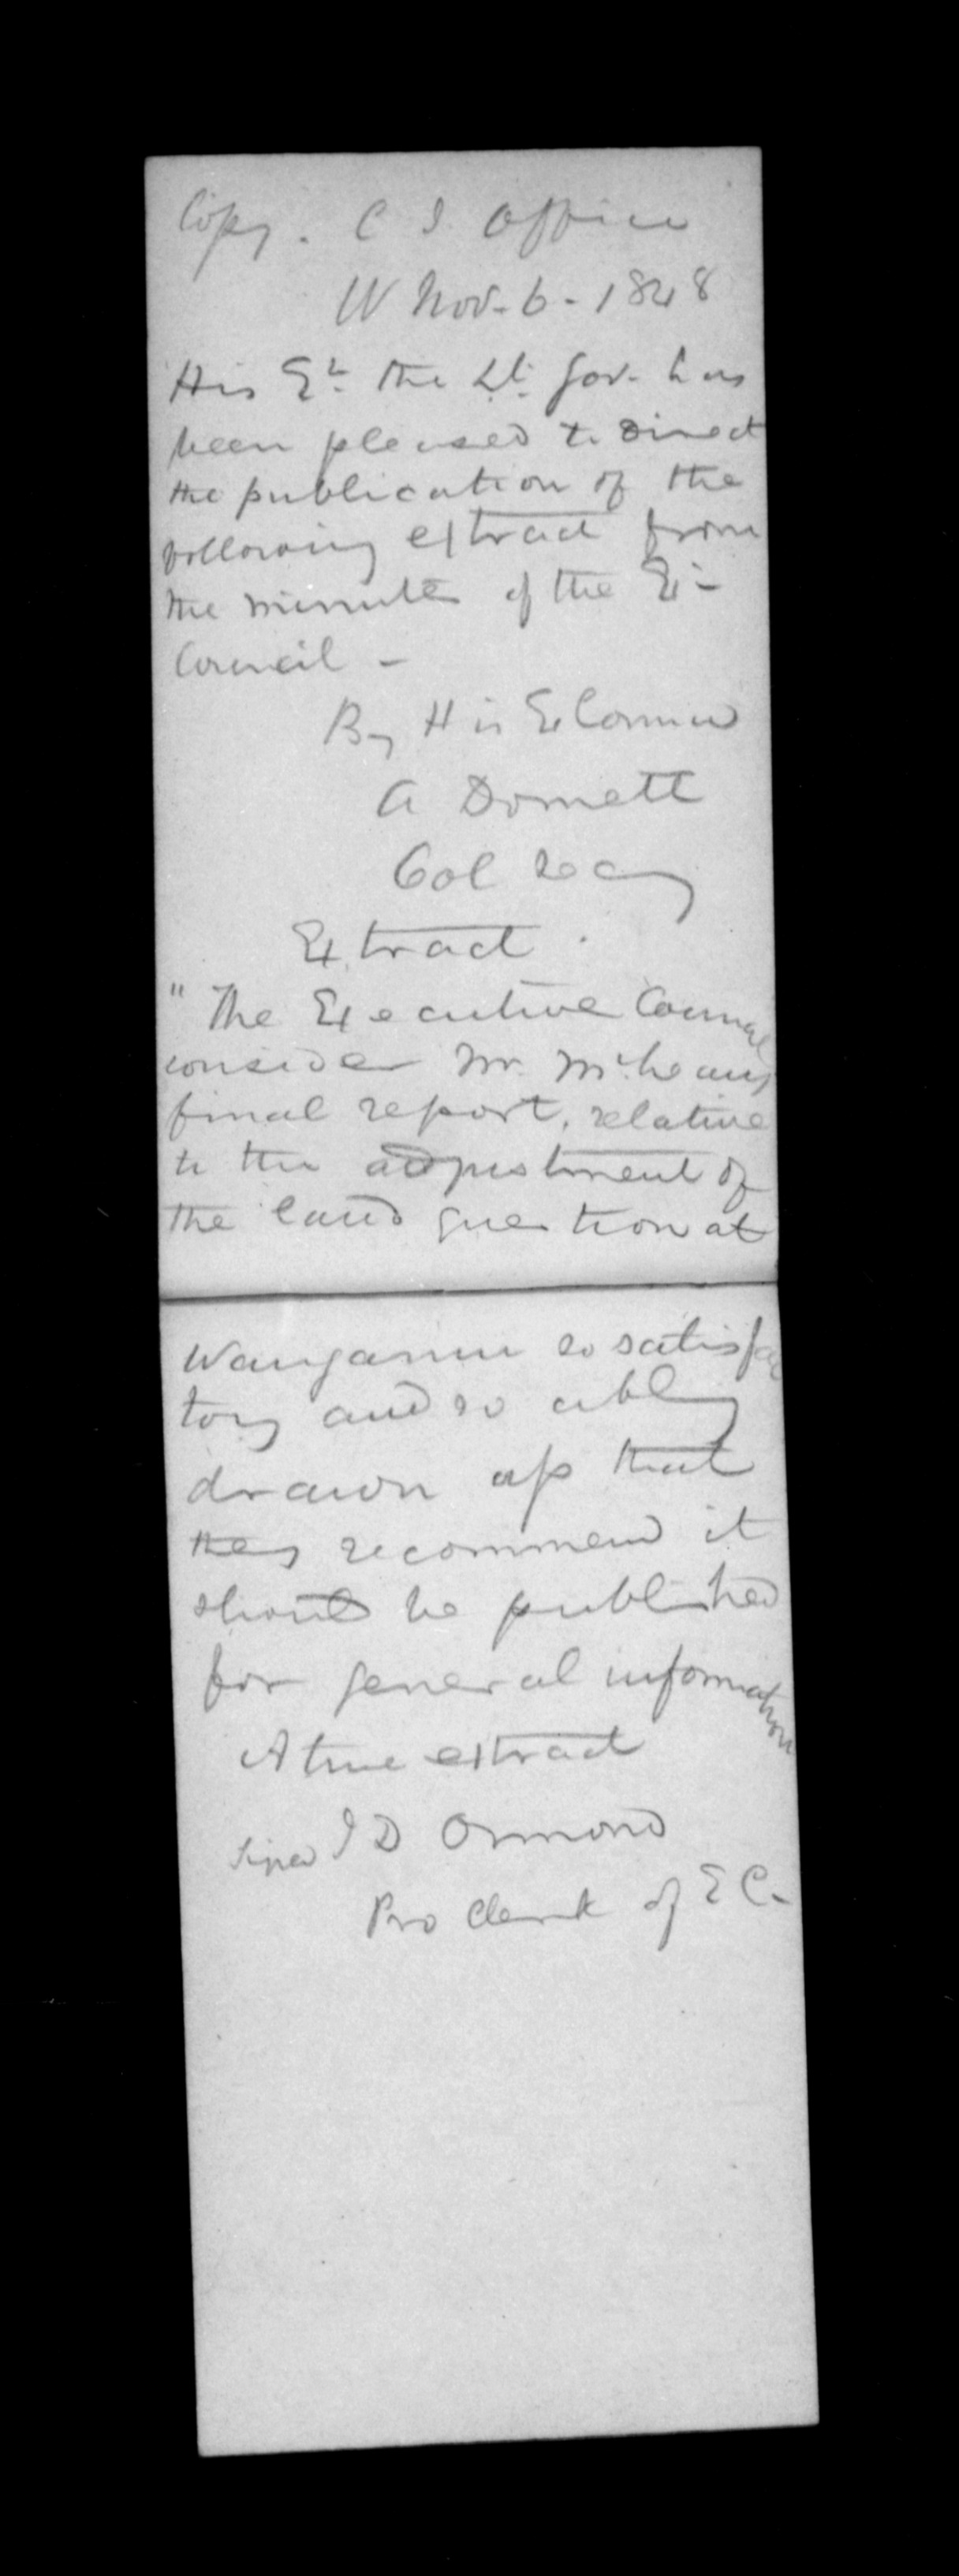 Copy. C S. Office
W Nov. 6 - 1848
His Ex. the Lt. Gov. has
been pleased to direct
the publication of the
following extract from
the minutes of the Ex -
Council -
By His Ex Comm
A Domett
Col Secy
Extract.
"The Executive Council
consider Mr. McLeans
final report, relative
to the adjustment of
the land question at
Wanganui so satisfac
tory and so ably
drawn up that
they recommend it
should be published
for general information
A true extract
signed J D Ormond
Pro Clerk of E C -